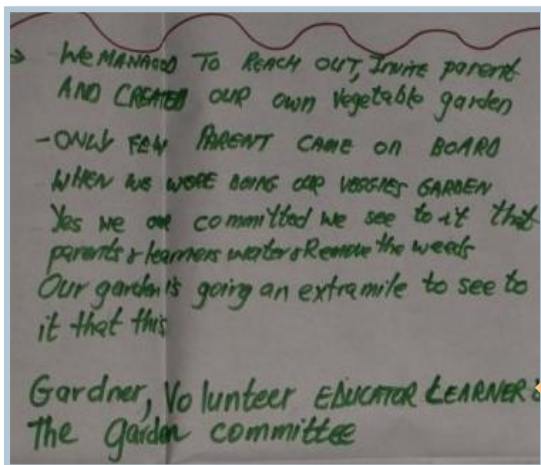 → WE MANAGED TO REACH OUT, INVITE parent
AND CREATED OUR own vegetable garden
- ONLY FEW PARENT CAME on BOARD
WHEN WE WERE DOING OUR VEGGIES GARDEN
Yes we are committed we see to it that
parents & learners water & Remove the weeds
Our garden is going an extramile to see to
it that this
Gardner, Volunteer EDUCATOR LEARNER &
The garden committee